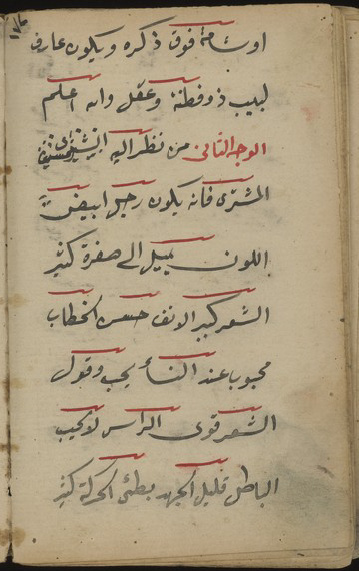 او شامة فوق ذكره ويكون عارف
لبيب ذو فطنة وعقل والله اعلم
الوجه الثانى من نظر اليه
المشترى فانه يكون رجل ابيض
اللون يميل الى صفرة كثير
الشعر كبير الانف حسن الخطاب
محبوبا عند النسأ يحب وقول
الشعر قوى الراس لا يحب
الباطل قليل الجهد بطئ الحركة كثير